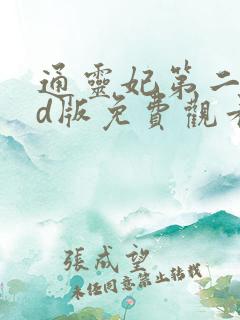 通靈妃第二
d版免費觀看
張成望
未经同意禁止转载